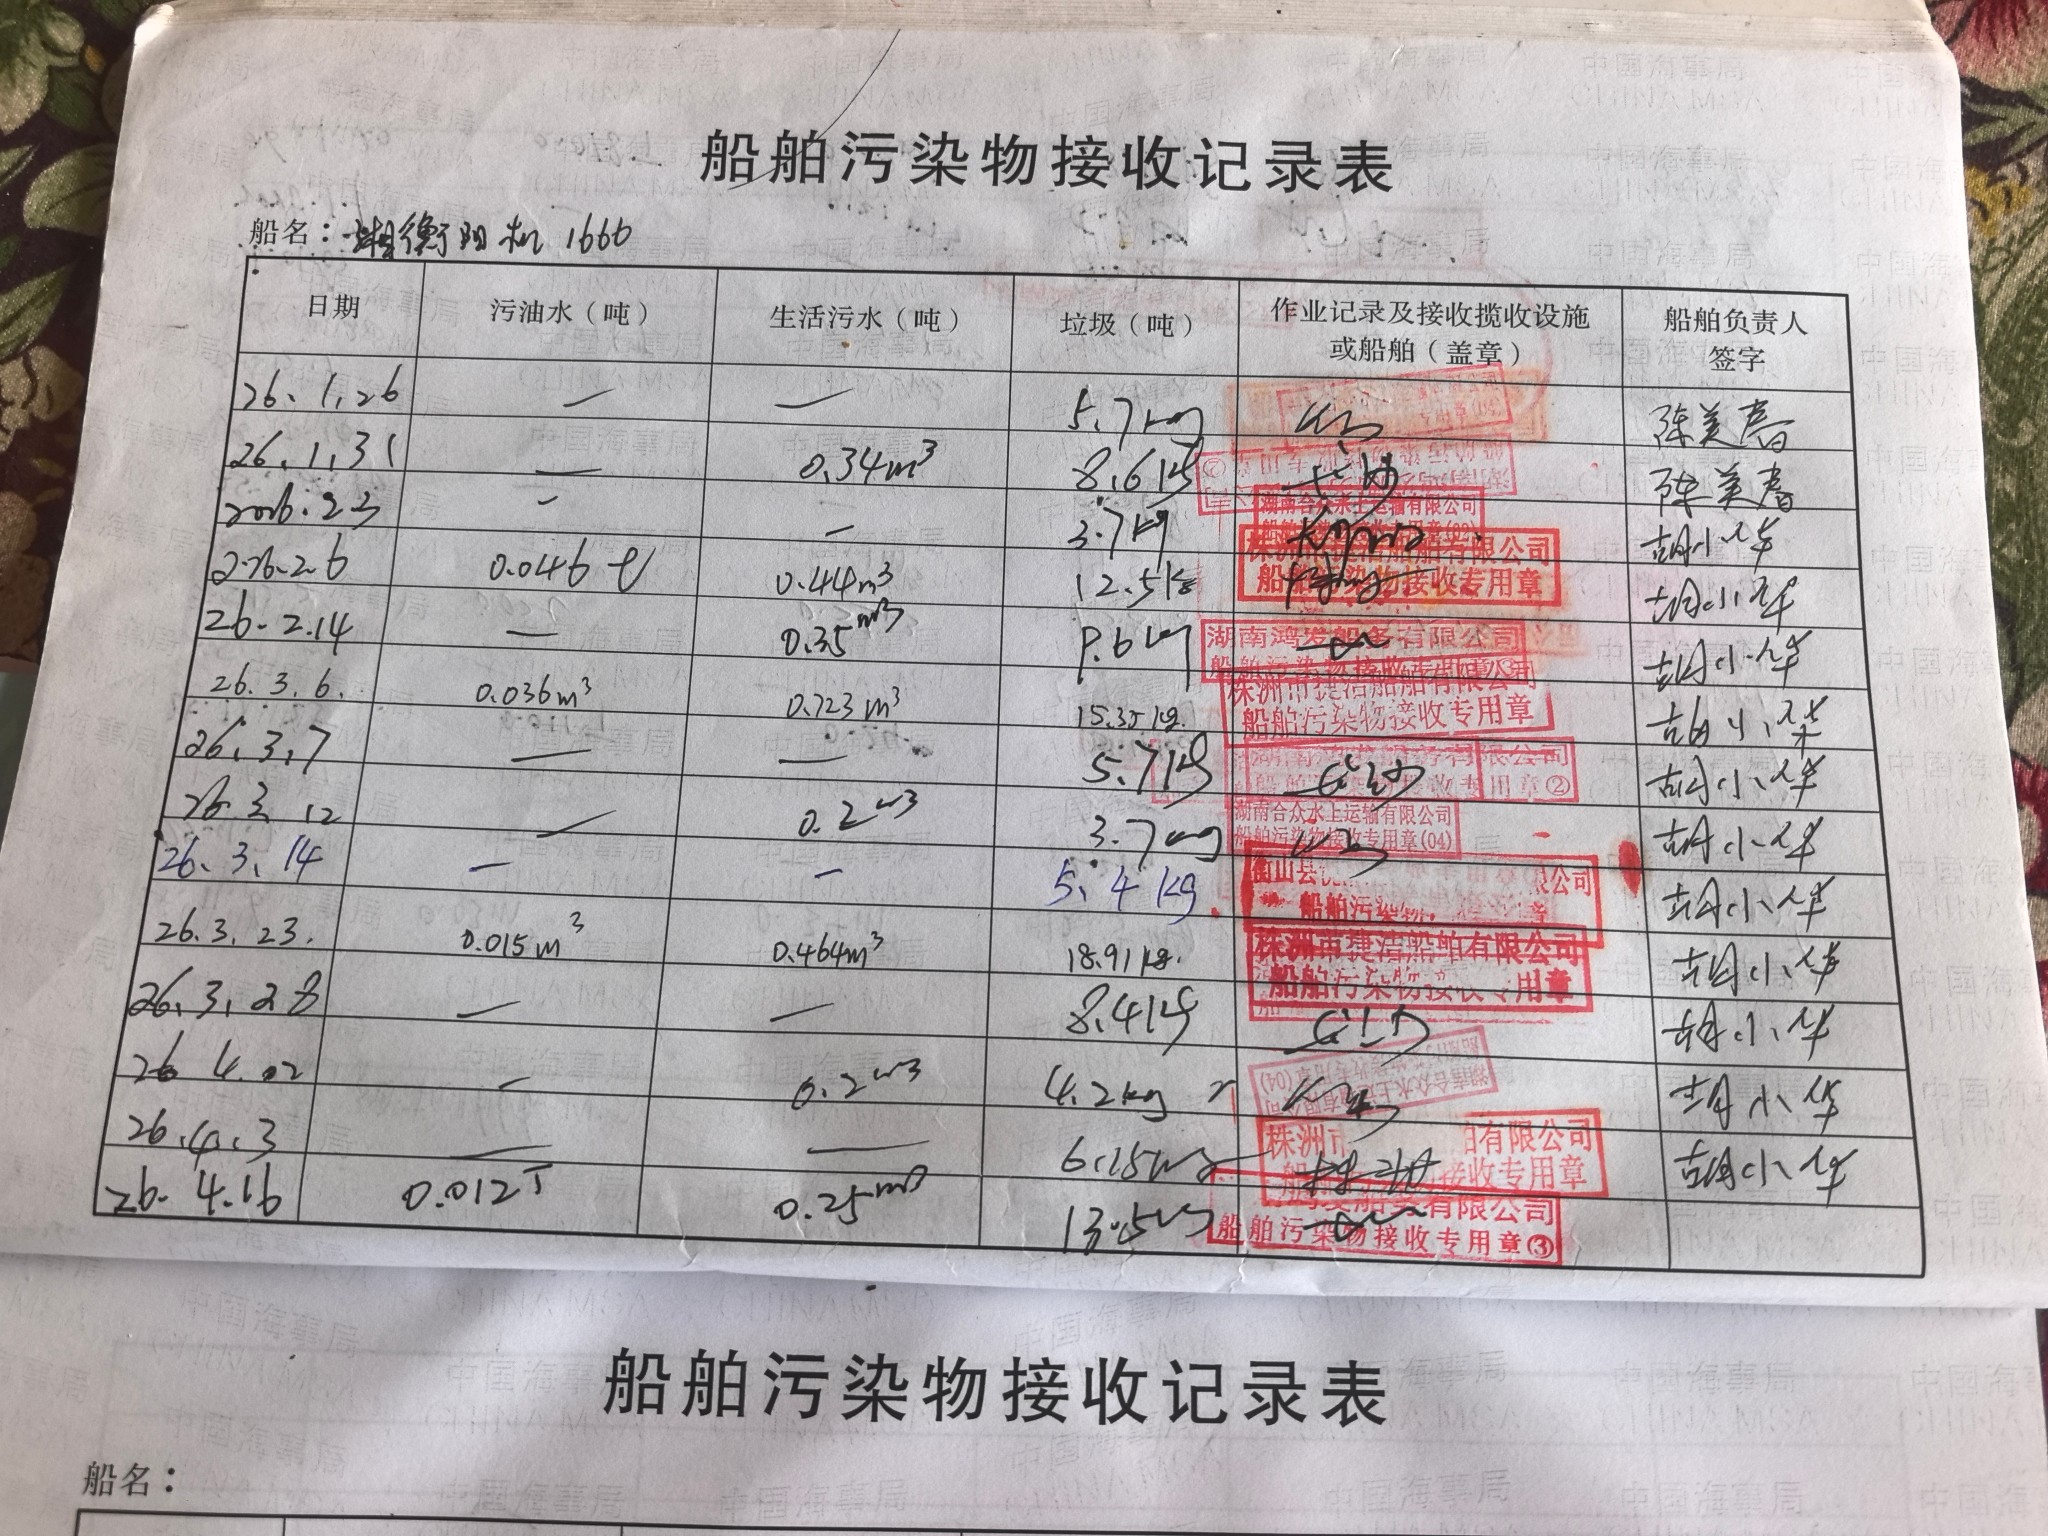 船舶污染物接收记录表
船名：湘衡阳机1666
日期 污油水（吨） 生活污水（吨） 垃圾（吨） 作业记录及接收揽收设施或船舶（盖章） 船舶负责人签字
26.1.26 — — 5.7kg 陈美春
26.1.31 — 0.34m³ 8.6kg 长沙 陈美春
2026.2.3 — — 3.7kg 湖南合众水上运输有限公司 胡小华
2026.2.6 0.046t 0.44m³ 12.5kg 株洲市捷洁船舶有限公司 船舶污染物接收专用章 胡小华
26.2.14 — 0.35m³ 9.6kg 湖南鸿发船务有限公司 船舶污染物接收专用章③ 胡小华
26.3.6. 0.036m³ 0.723m³ 15.35kg. 株洲市捷洁船舶有限公司 船舶污染物接收专用章 胡小华
26.3.7 — — 5.7kg 长沙 船舶污染物接收专用章② 胡小华
26.3.12 — 0.2m³ 3.7kg 湖南合众水上运输有限公司 船舶污染物接收专用章(04) 胡小华
26.3.14 — — 5.4kg 衡山县 限公司 船舶污染物 胡小华
26.3.23. 0.015m³ 0.464m³ 18.91kg. 株洲市捷洁船舶有限公司 船舶污染物接收专用章 胡小华
26.3.28 — — 8.4kg 胡小华
26.4.02 — 0.2m³ 4.2kg 湖南合众水上运输有限公司 船舶污染物接收专用章(04) 胡小华
26.4.3 — — 6.15kg 株洲市 舶有限公司 接收专用章 株洲 胡小华
26.4.16 0.012T 0.25m³ 13.5kg 船舶污染物接收专用章③
船舶污染物接收记录表
船名：